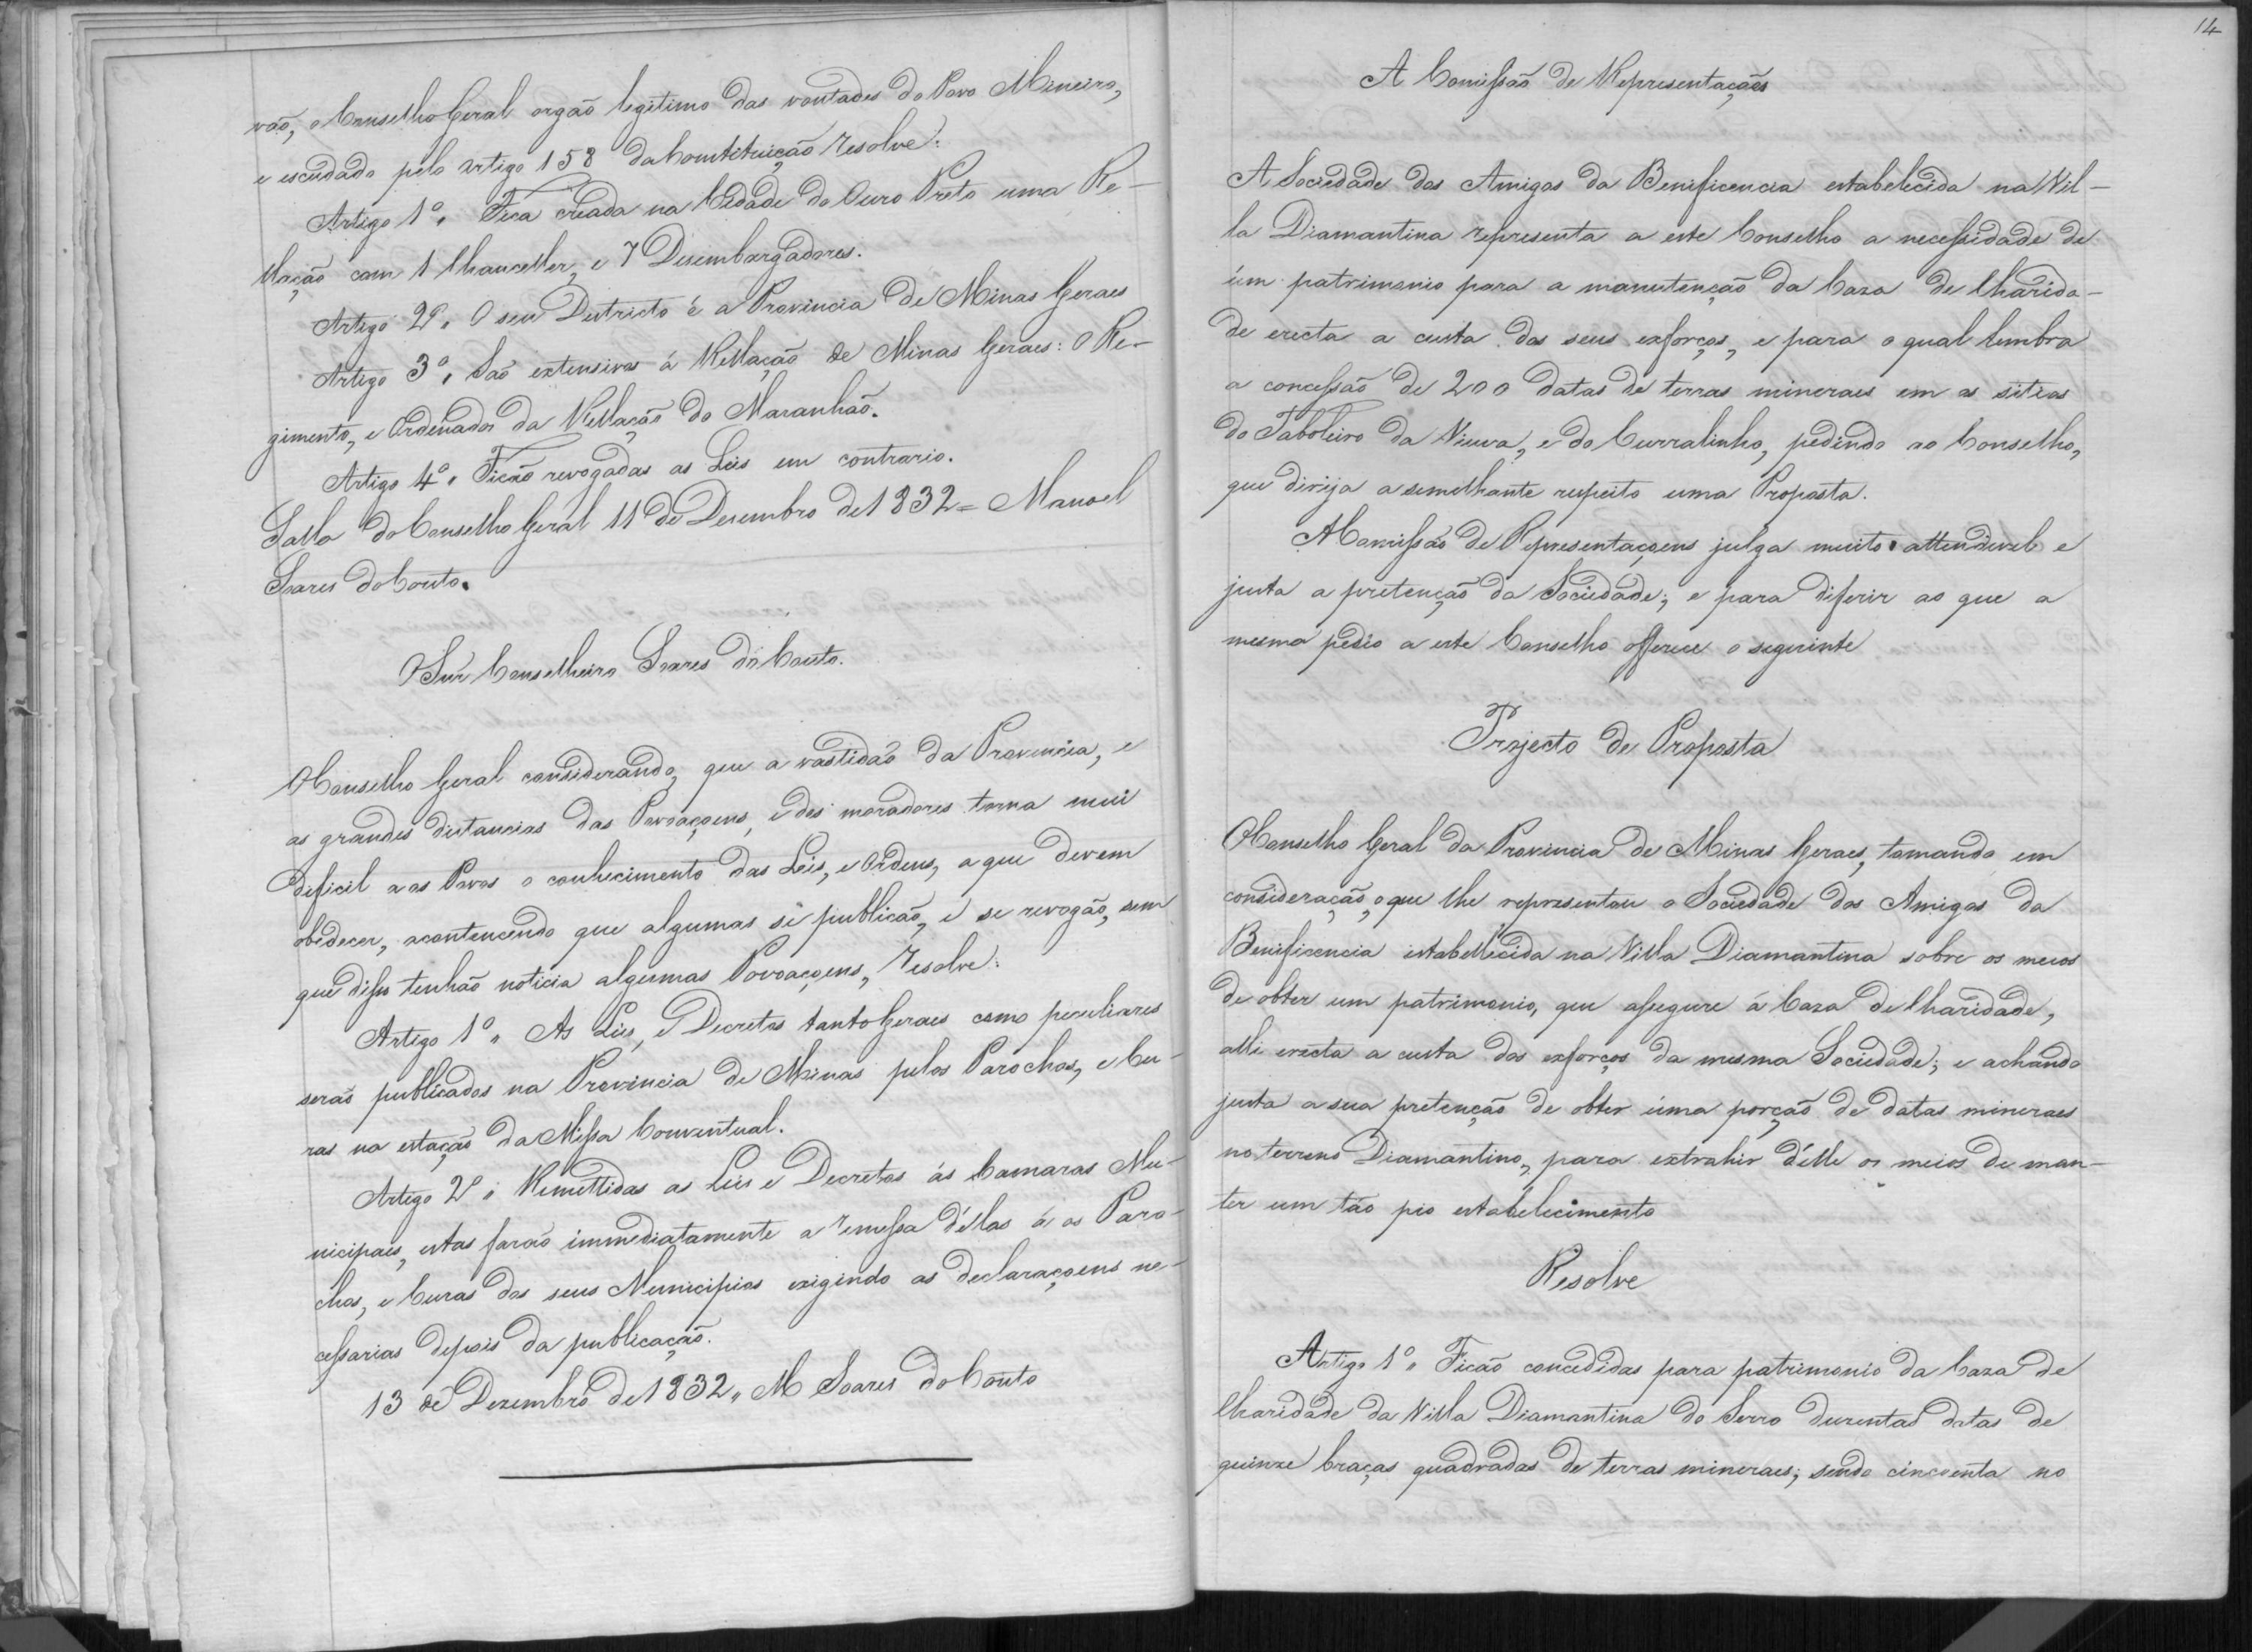 vaõ, o Conselho Geral orgaõ legitimo das vontades do Povo Mineiro,
e escudado pelo artigo 158 da Constituição resolve:
Artigo 1º " Fica creada na Cidade do Ouro Preto uma Re-
llação com 1 Chanceller, e 7 Desembargadores.
Artigo 2º " O seu Districto é a Provincia de Minas Geraes
Artigo 3º " Saõ extensivos á Rellação de Minas Geraes: O Re-
gimento, e Ordenados da Rellação do Maranhaõ.
Artigo 4º " Ficaõ revogadas as Leis em contrario.
Salla do Conselho Geral 11 de Desembro de 1832 = Manoel
Soares do Couto.
O Snr̃ Conselheiro Soares do Couto.
O Conselho Geral considerando, que a vastidaõ da Provincia, e
as grandes distancias das Povoaçoens, e dos moradores torna mui
deficil a os Povos o conhecimento das Leis, e Ordens, a que devem
obedecer, acontencendo que algumas se publicaõ, e se revogaõ, sem
que disso tenhaõ noticia algumas Povoaçoens, resolve:
Artigo 1º " As Leis, e Decretos tanto Geraes como peculiares
seraõ publicados na Provincia de Minas pelos Parochos, e Cu-
ras na estação da Missa Conventual.
Artigo 2º " Remettidas as Leis e Decretos ás Camaras Mu-
nicipaes, estas faraõ immediatamente a remessa d'ellas á os Paro-
chos, e Curas dos seus Municipios exigindo as declaraçoens ne-
cessarias depois da publicação.
13 de Dezembro de 1832 " M Soares do Couto
14
A Comissaõ de Representaçoẽs
A Sociedade dos Amigos da Benificencia estabelecida na Vil-
la Diamantina representa a este Conselho a necessidade de
um patrimonio para a manutenção da Caza de Charida-
de erecta a custa dos seus exforços, e para o qual lembra
a concessaõ de 200 datas de terras mineraes em os sitios
do Taboleiro da Viuva, e do Curralinho, pedindo ao Conselho,
que dirija a semelhante respeito uma Proposta.
A Comissaõ de Representaçoens julga muito attendivel e
justa a pretenção da Sociedade; e para diferir ao que a
mesma pedio a este Conselho offerece o seguinte
Projecto de Proposta
O Conselho Geral da Provincia de Minas Geraes, tomando em
consideração, o que lhe representou a Sociedade dos Amigos da
Benificencia estabellecida na Villa Diamantina sobre os meios
de obter um patrimonio, que assegure á Caza de Charidade,
alli erecta a custa dos exforços da mesma Sociedade; e achando
justa a sua pretenção de obter uma porção de datas mineraes
no terreno Diamantino, para extrahir d'elle os meios de man-
ter um taõ pio estabelecimento
Resolve
Artigo 1º " Ficaõ concedidas para patrimonio da Caza de
Charidade da Villa Diamantina do Serro duzentas datas de
quinze braças quadradas de terras mineraes; sendo cincoenta no